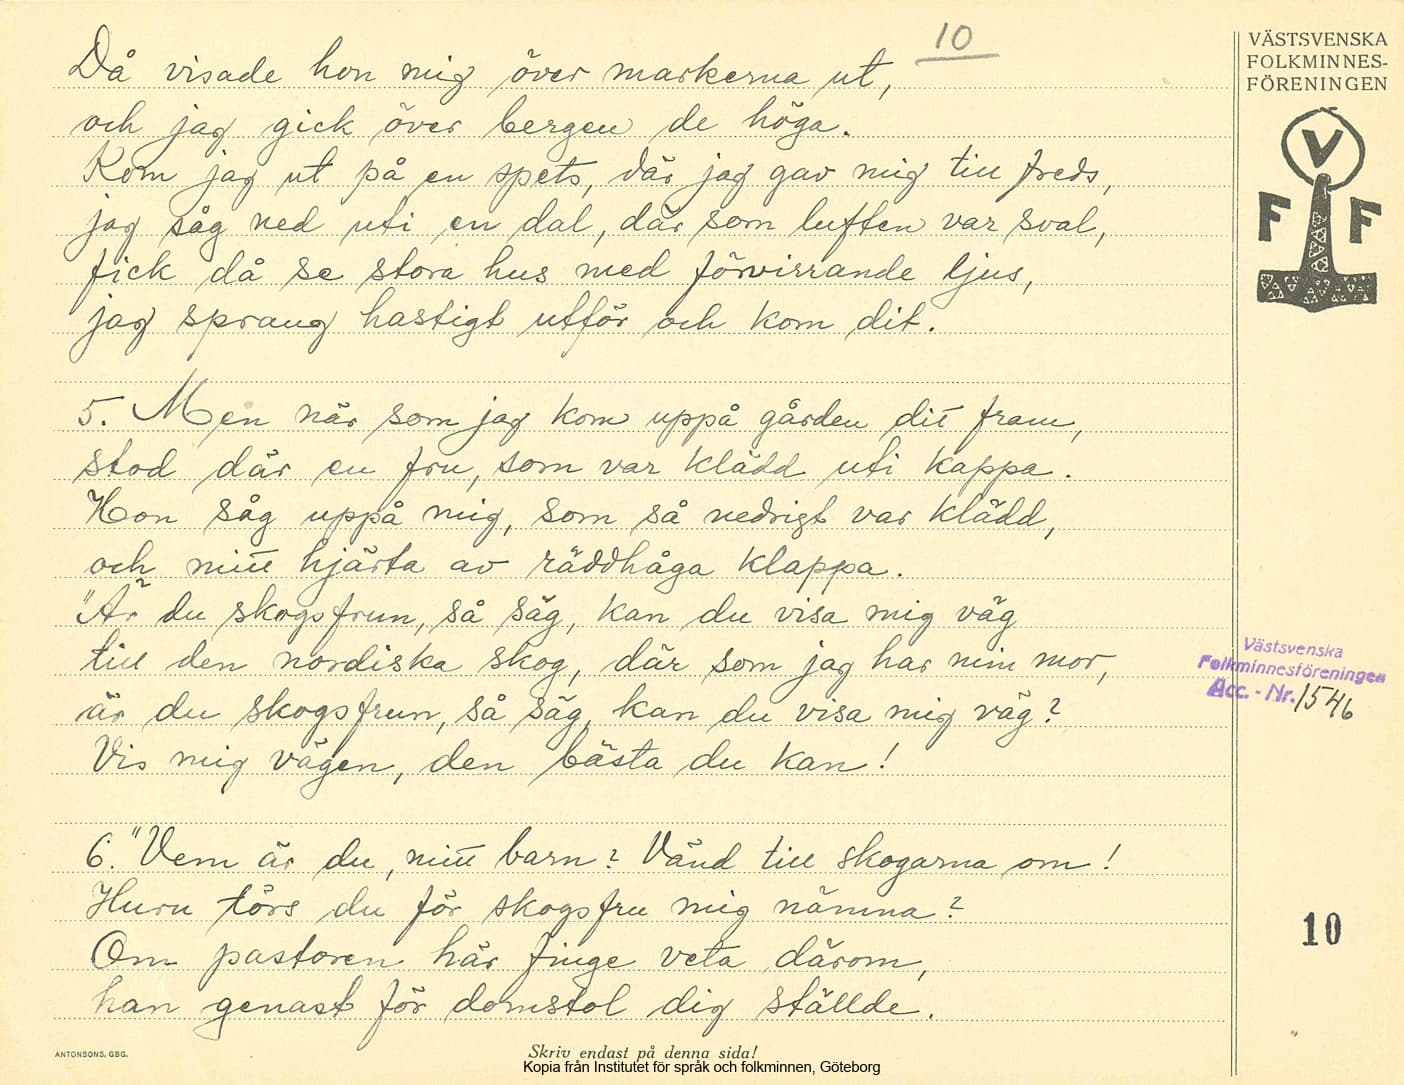 10
Då visade hon mig över markerna ut,
och jag gick över bergen de höga.
Kom jag ut på en spets, där jag gav mig till freds,
jag såg ned uti en dal, där som luften var sval,
fick då se stora hus med förvirrande ljus,
jag sprang hastigt utför och kom dit.
5. Men när som jag kom uppå gården dit fram,
stod där en fru, som var klädd uti kappa.
Hon såg uppå mig, som så nedrigt var klädd,
och mitt hjärta av räddhåga klappa.
"Är du skogsfrun, så säg, kan du visa mig väg
till den nordiska skog, där som jag har min mor,
är du skogsfrun, så säg, kan du visa mig väg?
Vis mig vägen, den bästa du kan!
6. "Vem är du, mitt barn? Vänd till skogarna om!
Huru törs du för skogsfru mig nämna?
Om pastoren här finge veta därom,
han genast för domstol dig ställde.
VÄSTSVENSKA
FOLKMINNES-
FÖRENINGEN
V
F F
Västsvenska
Folkminnesföreningen
Acc. - Nr. 1546
10
ANTONSONS, GBG.
Skriv endast på denna sida!
Kopia från Institutet för språk och folkminnen, Göteborg